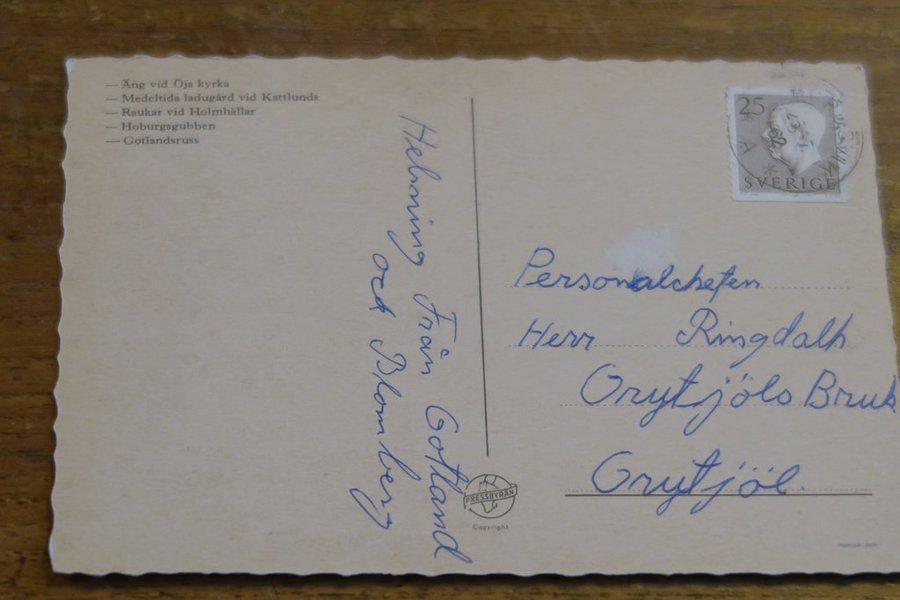 — Äng vid Öja kyrka
— Medeltida ladugård vid Kattlunds
— Raukar vid Holmhällar
— Hoburgsgubben
— Gotlandsruss
Helsning Från Gotland
och Blomberg
25
SVERIGE
Personalchefen
Herr Ringdalh
Grytjöls Bruk
Grytjöl.
PRESSBYRÅN
Copyright